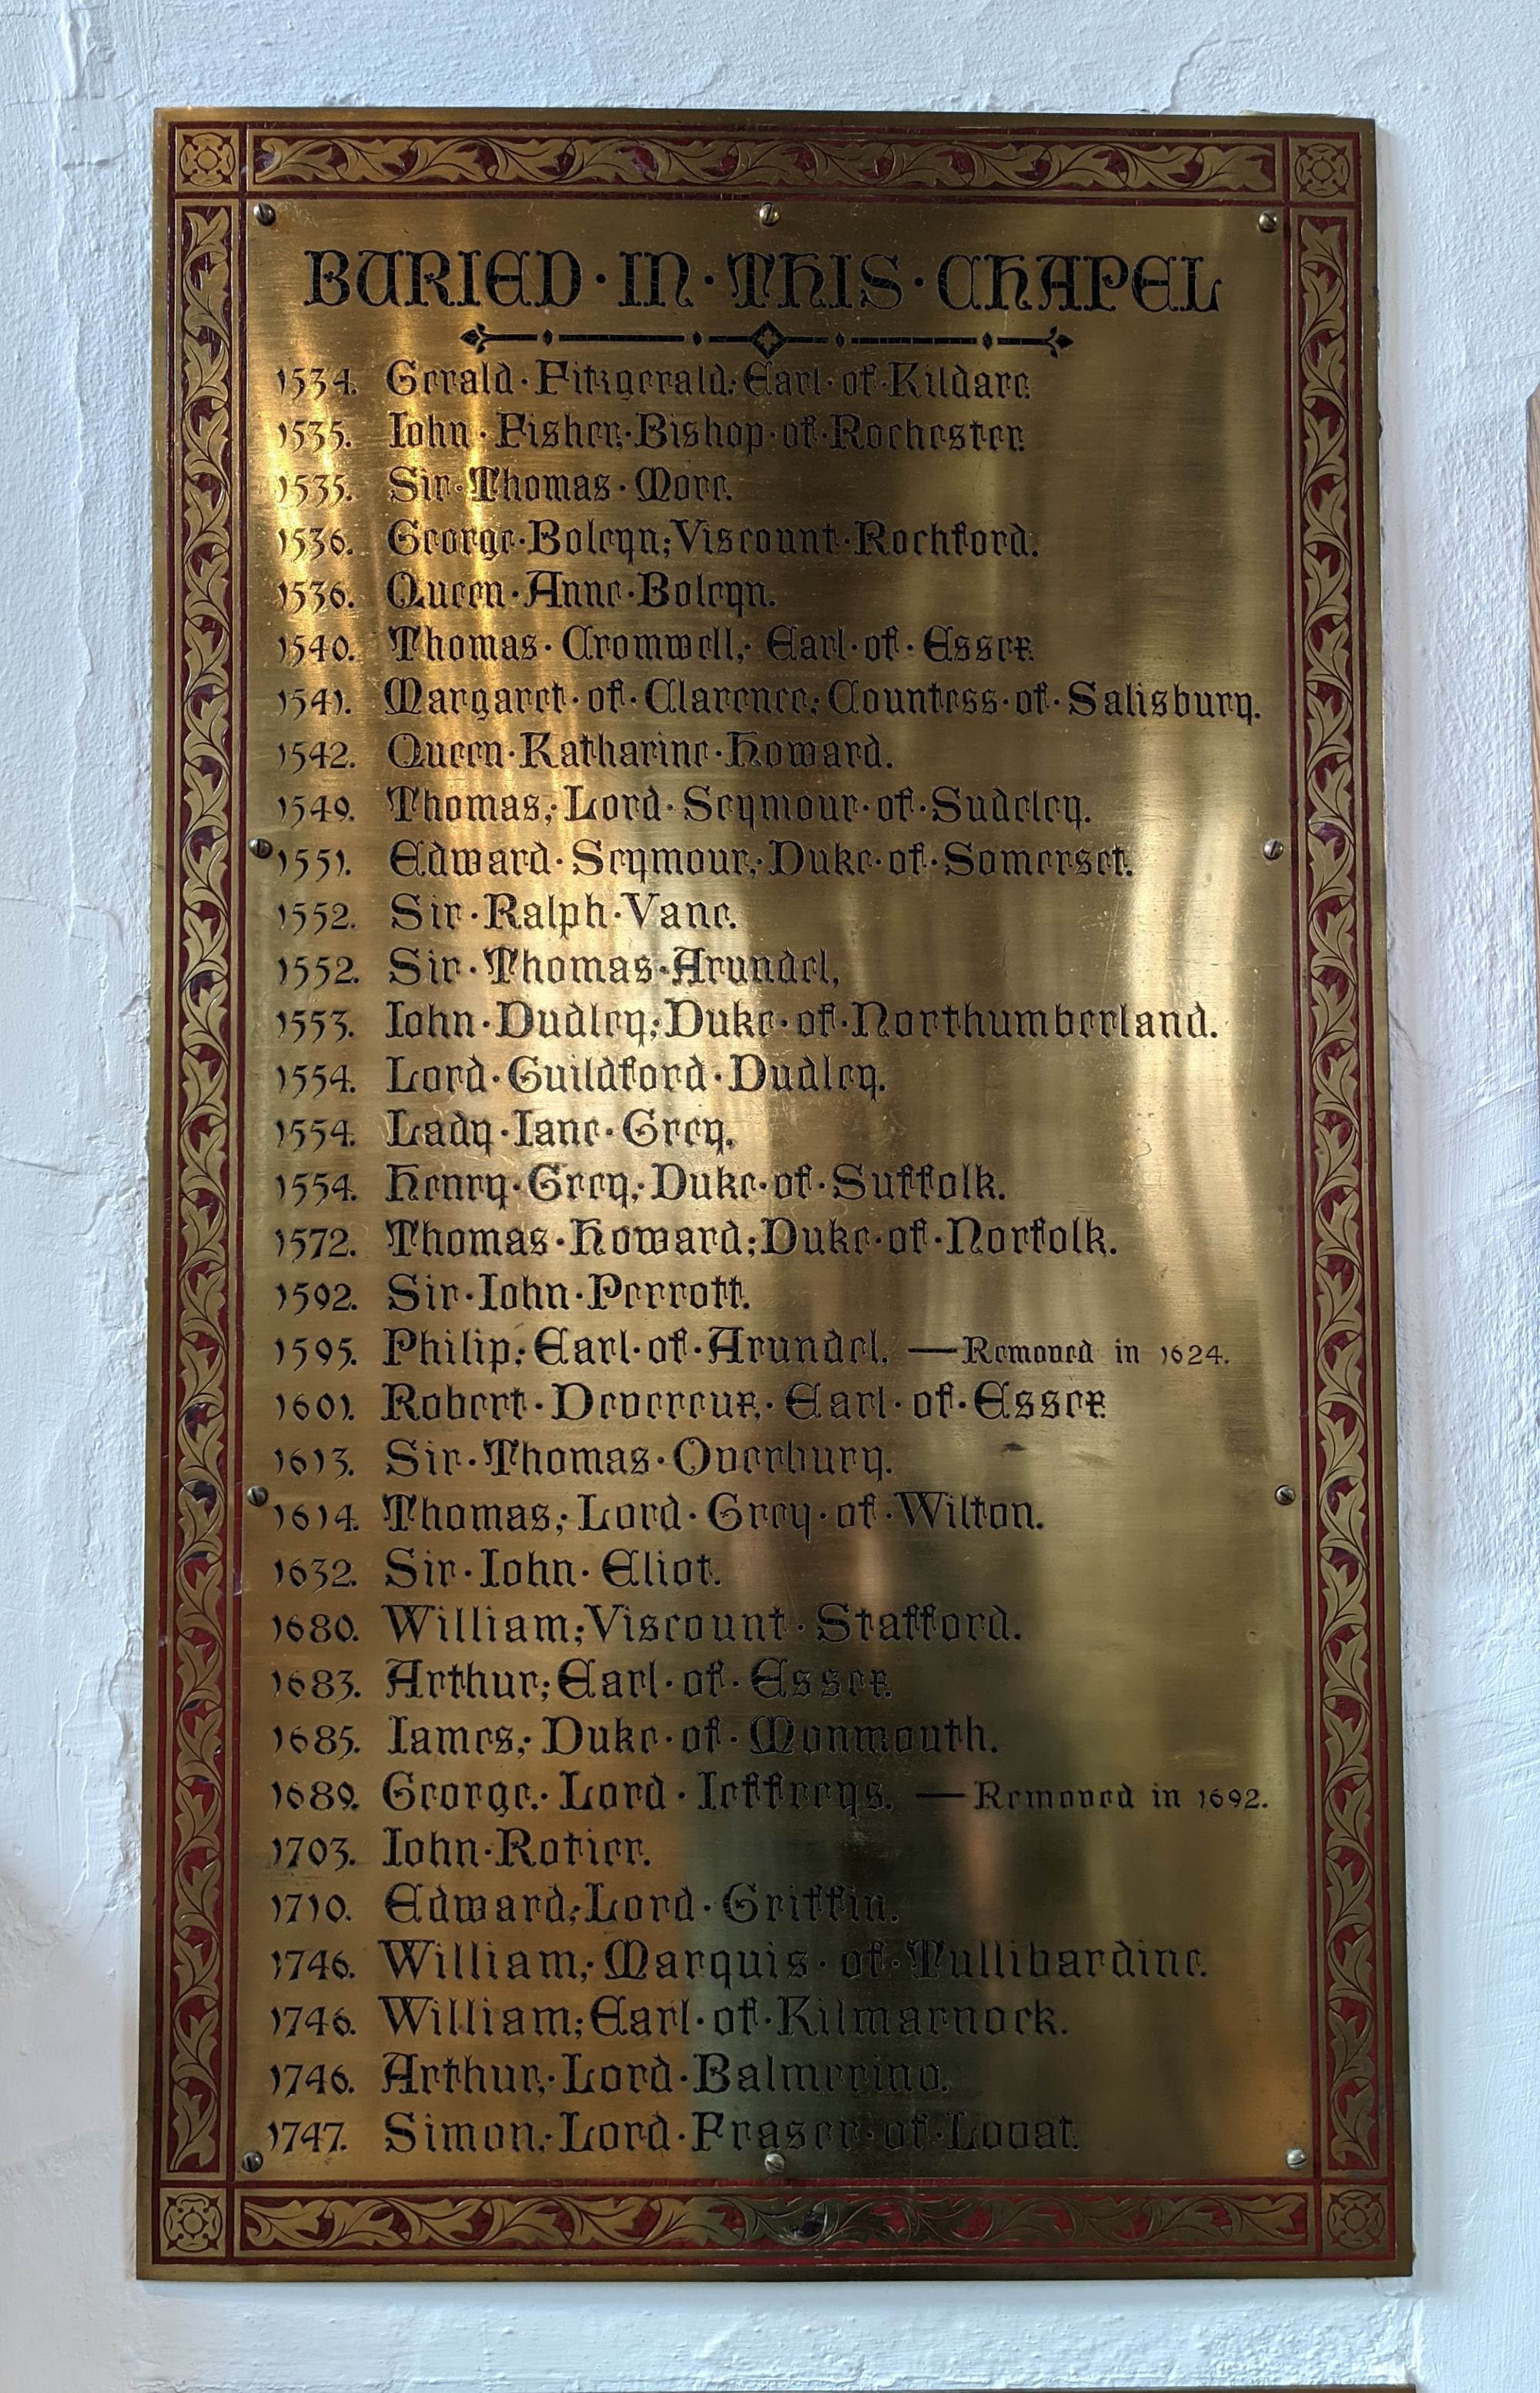 BURIED·IN·THIS·CHAPEL
1534. Gerald·Fitzgerald;·Earl·of·Kildare.
1535. Iohn·Fisher;·Bishop·of·Rochester.
1535. Sir·Thomas·More.
1536. George·Boleyn;·Viscount·Rochford.
1536. Queen·Anne·Boleyn.
1540. Thomas·Cromwell;·Earl·of·Essex.
1541. Margaret·of·Clarence;·Countess·of·Salisbury.
1542. Queen·Katharine·Howard.
1549. Thomas;·Lord·Seymour·of·Sudeley.
1551. Edward·Seymour;·Duke·of·Somerset.
1552. Sir·Ralph·Vane.
1552. Sir·Thomas·Arundel.
1553. Iohn·Dudley;·Duke·of·Northumberland.
1554. Lord·Guildford·Dudley.
1554. Lady·Iane·Grey.
1554. Henry·Grey;·Duke·of·Suffolk.
1572. Thomas·Howard;·Duke·of·Norfolk.
1592. Sir·Iohn·Perrott.
1595. Philip;·Earl·of·Arundel. —Removed in 1624.
1601. Robert·Devereux;·Earl·of·Essex
1613. Sir·Thomas·Overbury.
1614. Thomas;·Lord·Grey·of·Wilton.
1632. Sir·Iohn·Eliot.
1680. William;·Viscount·Stafford.
1683. Arthur;·Earl·of·Essex.
1685. Iames;·Duke·of·Monmouth.
1689. George;·Lord·Ieffreys. —Removed in 1692.
1703. Iohn·Rotier.
1710. Edward;·Lord·Griffin.
1746. William;·Marquis·of·Tullibardine.
1746. William;·Earl·of·Kilmarnock.
1746. Arthur;·Lord·Balmerino.
1747. Simon;·Lord·Fraser·of·Lovat.